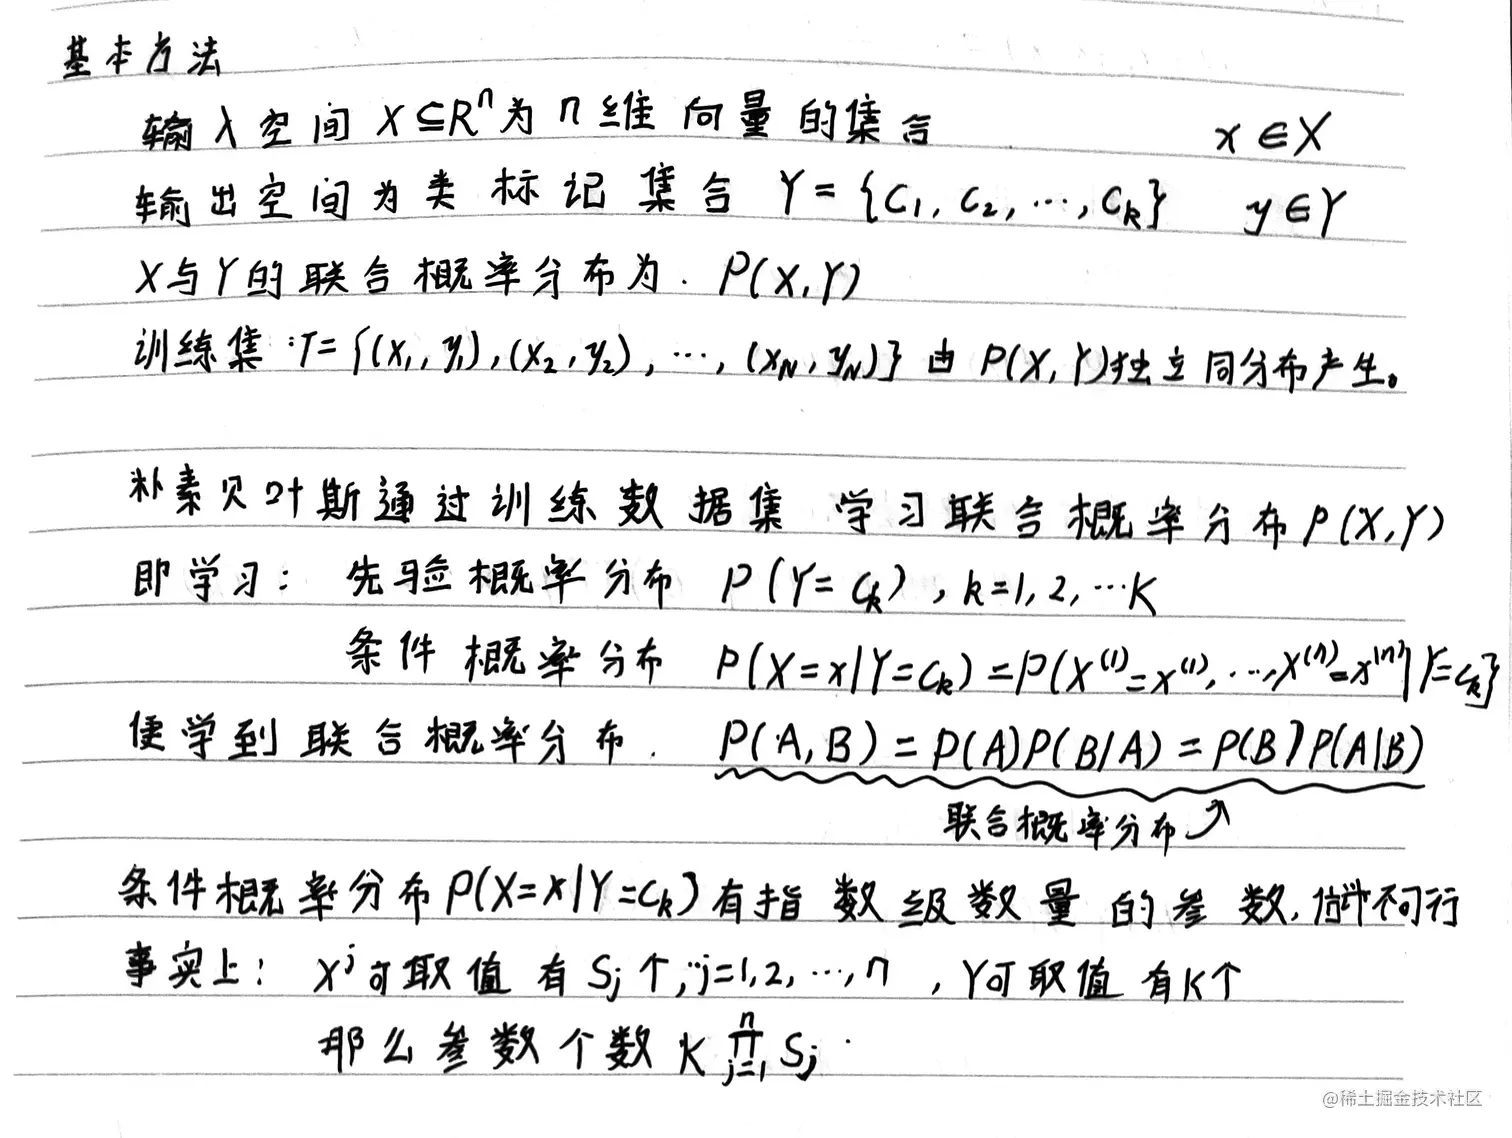 基本方法
输入空间 X⊆Rⁿ为 n 维 向量的集合 x∈X
输出空间为类标记集合 Y={C₁, C₂, …, Cₖ} y∈Y
X与Y的联合概率分布为. P(X,Y)
训练集:T={(x₁, y₁),(x₂, y₂), …, (x_N, y_N)} 由 P(X,Y)独立同分布产生。
朴素贝叶斯通过训练数据集 学习联合概率分布P(X,Y)
即学习: 先验概率分布 P(Y=cₖ), k=1,2,…K
条件概率分布 P(X=x|Y=cₖ)=P(X⁽¹⁾=x⁽¹⁾,…,X⁽ⁿ⁾=x⁽ⁿ⁾|Y=cₖ}
便学到联合概率分布. P(A,B)=P(A)P(B/A)=P(B)P(A|B)
联合概率分布
条件概率分布P(X=x|Y=cₖ)有指数级数量的参数,估计不可行
事实上: xʲ可取值有Sⱼ个,j=1,2,…,n ,Y可取值有K个
那么参数个数 K ∏ⁿⱼ₌₁ Sⱼ.
@稀土掘金技术社区